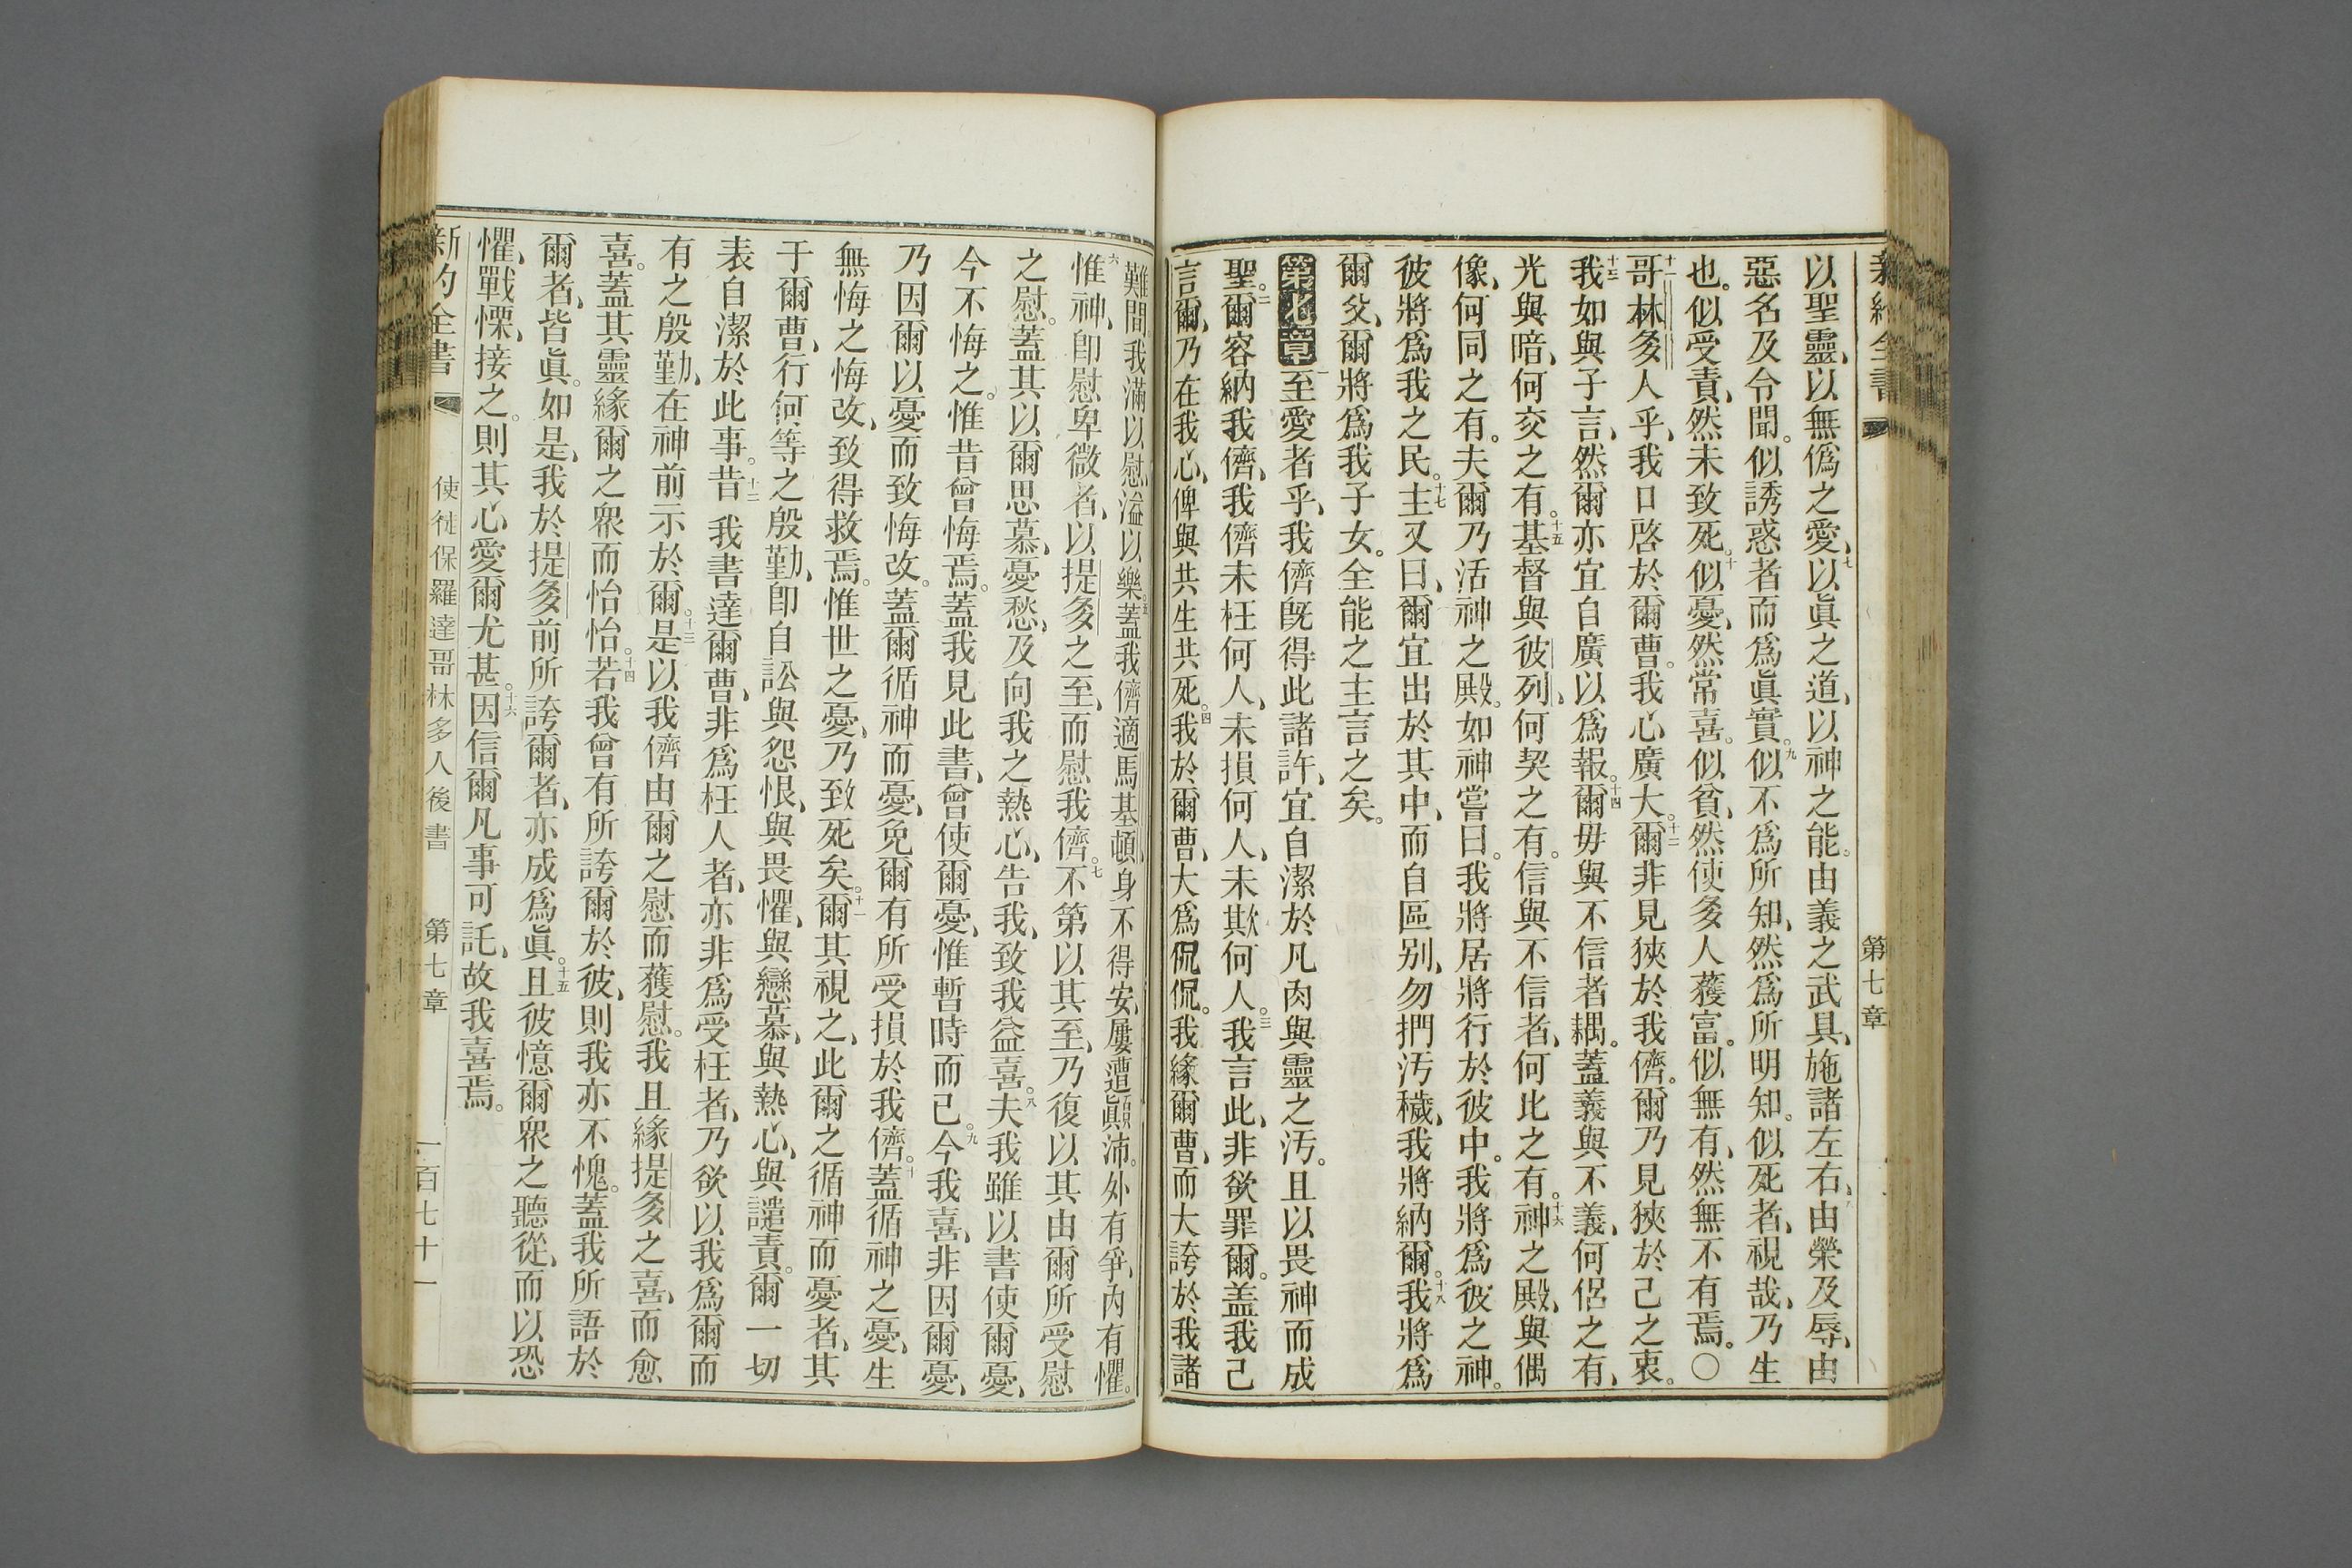 新約全書 第七章
以聖靈、以無僞之愛、七以眞之道、以神之能。由義之武具、施諸左右、由榮及辱、由
惡名及令聞。似誘惑者而爲眞實。九似不爲所知、然爲所明知。似死者、視哉、乃生
也。似受責、然未致死。十似憂、然常喜。似貧、然使多人獲富。似無有、然無不有焉。〇
十一哥林多人乎、我口啓於爾曹。我心廣大。十二爾非見狹於我儕。爾乃見狹於己之衷。
十三我如與子言、然爾亦宜自廣以爲報。十四爾毋與不信者耦。蓋義與不義、何侶之有、
光與暗、何交之有。十五基督與彼列、何契之有。信與不信者、何比之有。十六神之殿、與偶
像、何同之有。夫爾乃活神之殿。如神嘗曰。我將居將行於彼中。我將爲彼之神。
彼將爲我之民。十七主又曰、爾宜出於其中、而自區别、勿捫汚穢、我將納爾。十八我將爲
爾父、爾將爲我子女。全能之主言之矣。
第七章 一至愛者乎、我儕旣得此諸許、宜自潔於凡肉與靈之汚。且以畏神而成
聖。二爾容納我儕、我儕未枉何人、未損何人、未欺何人。三我言此、非欲罪爾。盖我已
言爾、乃在我心、俾與共生共死。四我於爾曹、大爲侃侃。我緣爾曹、而大誇於我諸
難間。我滿以慰、溢以樂。五蓋我儕適馬基頓、身不得安、屢遭顚沛。外有爭、內有懼。
六惟神、卽慰卑微者、以提多之至、而慰我儕。七不第以其至、乃復以其由爾所受慰
之慰。蓋其以爾思慕、憂愁、及向我之熱心、告我、致我益喜。八夫我雖以書使爾憂、
今不悔之。惟昔曾悔焉。蓋我見此書、曾使爾憂、惟暫時而已。九今我喜、非因爾憂、
乃因爾以憂而致悔改。蓋爾循神而憂、免爾有所受損於我儕。十蓋循神之憂、生
無悔之悔改、致得救焉。惟世之憂、乃致死矣。十一爾其視之、此爾之循神而憂者、其
于爾曹、行何等之殷勤、卽自訟與怨恨、與畏懼、與戀慕、與熱心、與譴責。爾一切
表自潔於此事。十二昔我書達爾曹、非爲枉人者、亦非爲受枉者、乃欲以我爲爾而
有之殷勤、在神前示於爾。十三是以我儕由爾之慰而獲慰。我且緣提多之喜、而愈
喜。蓋其靈緣爾之衆而怡怡。十四若我曾有所誇爾於彼、則我亦不愧。蓋我所語於
爾者、皆眞。如是、我於提多前所誇爾者、亦成爲眞。十五且彼憶爾衆之聽從、而以恐
懼、戰慄、接之。則其心愛爾尤甚。十六因信爾凡事可託、故我喜焉。
新約全書 使徒保羅達哥林多人後書 第七章 一百七十一